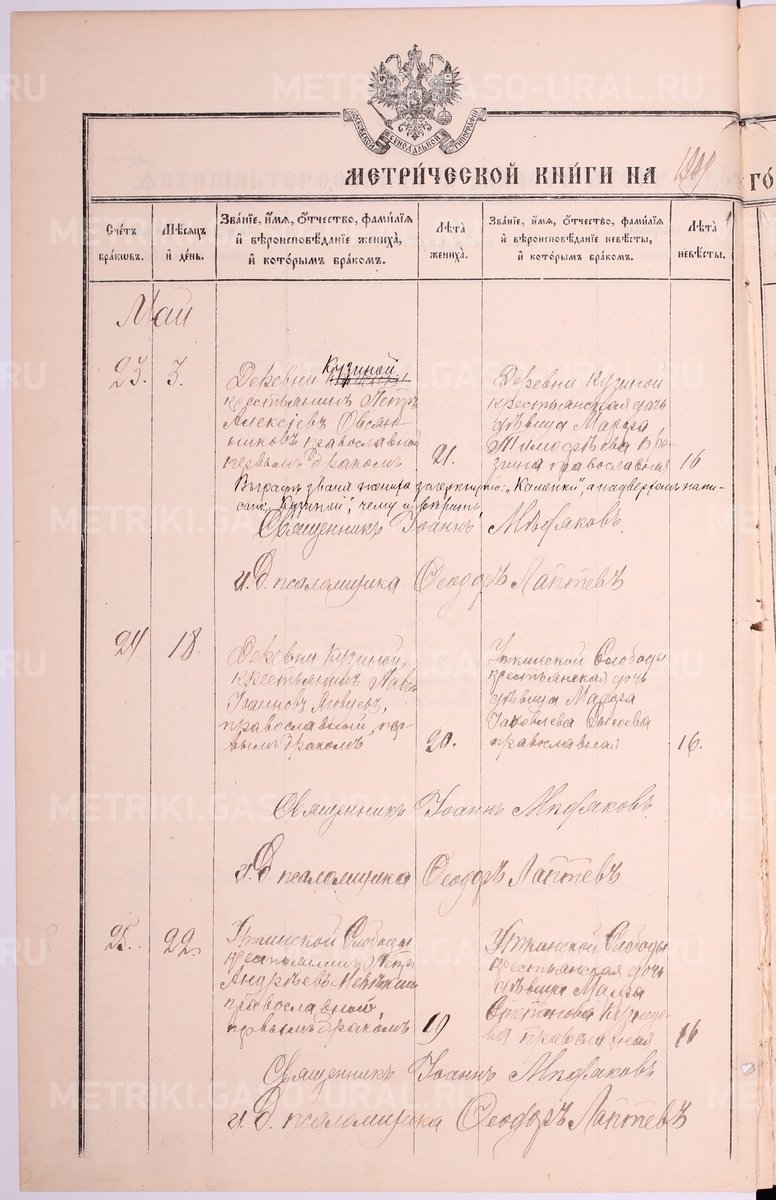 МОСКОВСКОЙ СѴНОДАЛЬНОЙ ТИПОГРАФІИ
МЕТРИ́ЧЕСКОЙ КНИ́ГИ НА 1909
ГО́
Сче́тъ бра́кѡвъ.
Мѣ́сѧцъ и҆ де́нь.
Зва́нїе, и҆́мѧ, ѻ҆́тчество, фами́лїѧ и҆ вѣроисповѣ́данїе жениха̀, и҆ кото́рымъ бра́комъ.
Лѣ́та жениха̀.
Зва́нїе, и҆́мѧ, ѻ҆́тчество, фами́лїѧ и҆ вѣроисповѣ́данїе невѣ́сты, и҆ кото́рымъ бра́комъ.
Лѣ́та невѣ́сты.
Май
23. 3.
Деревни Кузиной
крестьянинъ Петръ
Алексіев Овсян-
никовъ православной
первымъ бракомъ
21.
Деревни Кузиной
крестьянская дочь
дѣвица Марфа
Тимофѣева
православная
16
Въ графѣ званія жениха зачеркнуто: „Каменки", а надверхомъ напи-
сано „Кузиной", чему и вѣрить
Священникъ Іоаннъ
и. д. псаломщика Ѳеодоръ Лаптевъ
24 18.
Деревни Кузиной,
крестьянинъ
Іоанновъ
православный, пер-
вымъ бракомъ
20.
Уткинской Слободы
крестьянская дочь
дѣвица Марфа
Іаковлева Сысоева
православная
16.
Священникъ Іоаннъ
и. д. псаломщика Ѳеодоръ Лаптевъ
25. 22.
Уткинской Слободы
крестьянинъ Петр
Андрѣевъ
православной,
первымъ бракомъ
19
Уткинской Слободы
крестьянская дочь
дѣвица Марфа
Стефанова
православная
16
Священникъ Іоаннъ
и. д. псаломщика Ѳеодоръ Лаптевъ
METRIKI.GASO-URAL.RU